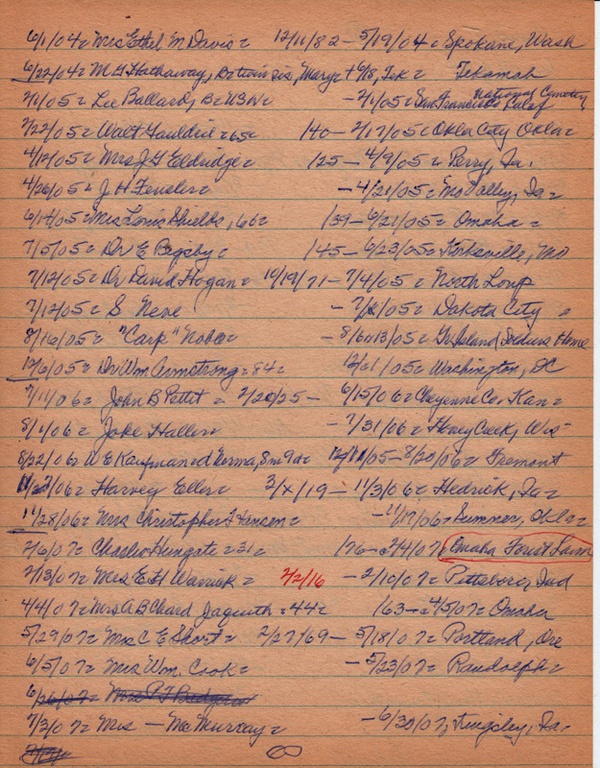 6/1/04 = Mrs Ethel M Davis = 12/11/82 - 5/19/04 = Spokane, Wash
6/22/04 = M G Hathaway, Br twin sis, Mary + 6/8, Tek = Tekamah
2/1/05 = Lee Ballard, - 2/1/05 = San Francisco National Cemetery Calif
2/22/05 = Walt Gauldrie = 65 = /40 - 2/17/05 = Okla City Okla =
4/12/05 = Mrs J G Eldridge = /25 - 4/9/05 = Perry, Ia.
4/26/05 = J H Fensler = - 4/21/05 = Mo Valley, Ia =
6/14/05 = Mrs Louis Shields, 66 = /39 - 6/21/05 = Omaha =
7/5/05 = Dr E Bigsby = /45 - 6/23/05 = Kirksville, Mo
7/12/05 = Dr David Hogan = 10/19/71 - 7/4/05 = North Loup
7/12/05 = S Neve - 7/8/05 = Dakota City =
8/16/05 = "Carp" Noba = - 8/6 13/05 = Gr Island Soldiers Home
12/6/05 = Dr Wm Armstrong = 84 = 12/1/05 = Washington, DC
7/11/06 = John B Pettit = 2/20/25 - 6/15/06 = Cheyenne Co. Kan =
8/1/06 = Jake Haller = - 7/31/06 = Honey Creek, Wis -
8/22/06 = W E Kaufman = d Verma, 8m 9d = /05 - 8/20/06 = Fremont
/06 = Harvey Eller = 3/x/19 - 11/3/06 = Hedrick, Ia =
11/28/06 = Mrs Christopher J Hansen = - 11/17/06 = Sumner, Okla =
2/6/07 = Charles Hungate = 31 = /76 - 2/4/07 = Omaha Forest Lawn
2/13/07 = Mrs E H Warrick = 2/2/16 - 2/10/07 = Pittsboro, Ind
4/4/07 = Mrs A B Chard Jaquith = 44 = /63 - 4/5/07 = Omaha
5/29/07 = Mrs C E Short = 2/27/69 - 5/18/07 = Portland, Ore
6/5/07 = Mrs Wm. Cook = - 5/23/07 = Randolph =
6/26/07 = Mrs P T
7/3/07 = Mrs - McMurray = - 6/30/07, Kingsley, Ia.